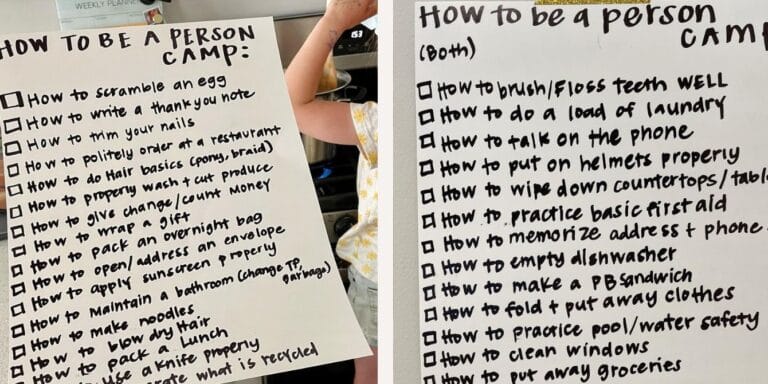 WEEKLY PLANNER
HOW TO BE A PERSON
CAMP:
How to scramble an egg
How to write a thank you note
How to trim your nails
How to politely order at a restaurant
How to do Hair basics (pony, braid)
How to properly wash + cut produce
How to give change/count money
How to wrap a gift
How to pack an overnight bag
How to open/address an envelope
How to apply sunscreen properly
How to Maintain a bathroom (change TP, garbage)
How to make noodles
How to blow dry Hair
How to pack a Lunch
use a knife properly
what is recycled
153
How to be a person
CAMP
(Both)
How to brush/Floss teeth WELL
How to do a load of laundry
How to talk on the phone
How to put on helmets properly
How to wipe down countertops/
How to practice basic first aid
How to memorize address + phone
How to empty dishwasher
How to make a PB sandwich
How to fold + put away clothes
How to practice pool/water safety
How to clean windows
How to put away groceries